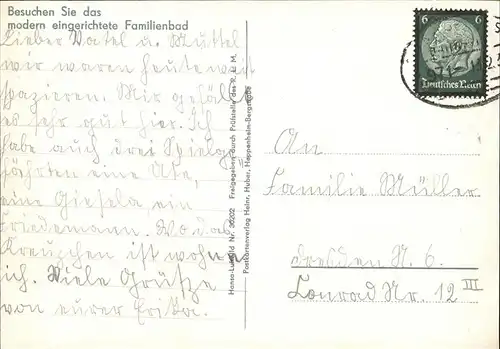 Besuchen Sie das
modern eingerichtete Familienbad
Lieber Vatel u. Muttel
wir waren heute weit
spazieren. Mir gefällt
es sehr gut hier. Ich
habe auch drei Spielge-
fährten eine Ute,
eine Giesela, ein
Friedemann. Wo das
Kreuzchen ist wohne
ich. Viele Grüße
von eurer Erika.
Hansa-Luftbild Nr. 30202 Freigegeben durch Prüfstelle des R. L. M.
Postkartenverlag Heinr. Huber, Heppenheim-Bergstraße
6 6
Deutsches Reich
An
Familie Müller
Dresden N. 6.
Conrad Nr. 12 III